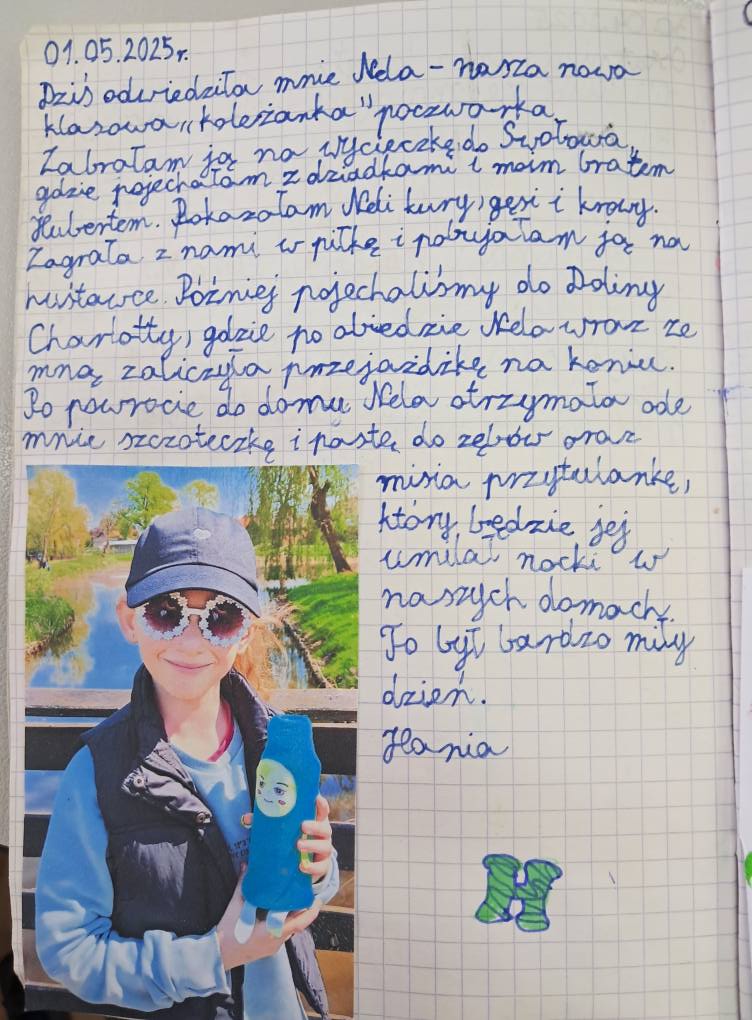 01.05.2025r.
Dziś odwiedziła mnie Nela – nasza nowa
klasowa „koleżanka" poczwarka.
Zabrałam ją na wycieczkę do Swołowa,
gdzie pojechałam z dziadkami i moim bratem
Hubertem. Pokazałam Neli kury, gęsi i krowy.
Zagrała z nami w piłkę i pobujałam ją na
huśtawce. Później pojechaliśmy do Doliny
Charlotty, gdzie po obiedzie Nela wraz ze
mną zaliczyła przejażdżkę na koniu.
Po powrocie do domu Nela otrzymała ode
mnie szczoteczkę i pastę do zębów oraz
misia przytulankę,
który będzie jej
umilał nocki w
naszych domach.
To był bardzo miły
dzień.
Hania
H